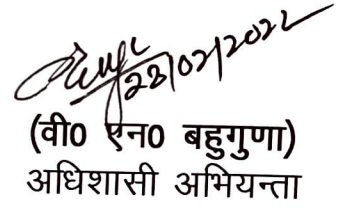 23/02/2022
(वी0 एन0 बहुगुणा)
अधिशासी अभियन्ता